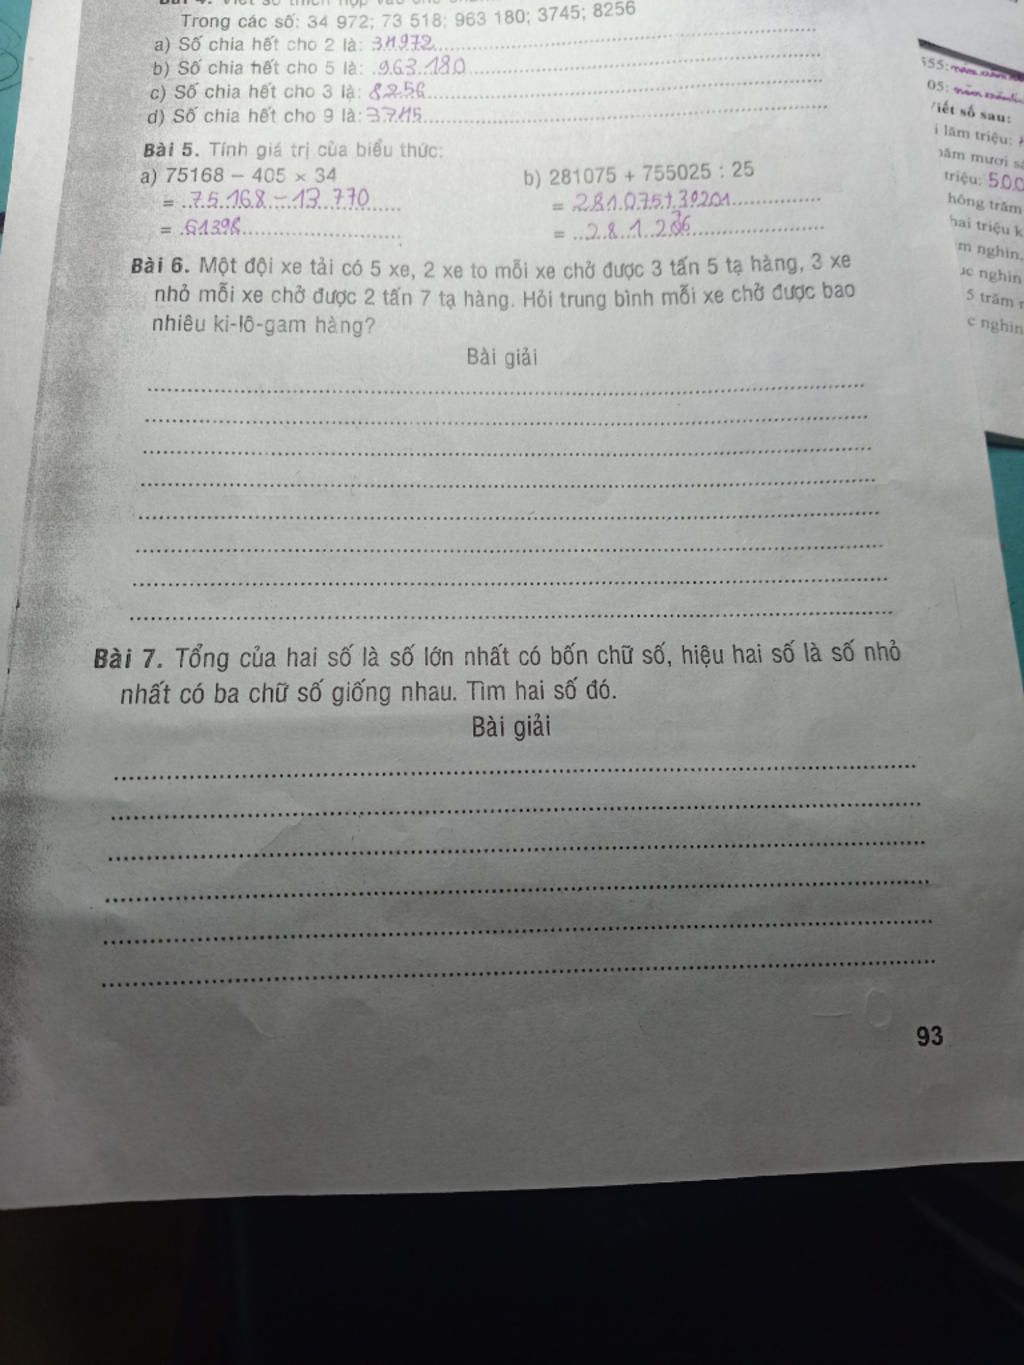 Trong các số: 34 972; 73 518; 963 180; 3745; 8256
a) Số chia hết cho 2 là: 34972
b) Số chia hết cho 5 là: 963 180
c) Số chia hết cho 3 là: 8256
d) Số chia hết cho 9 là: 3745
Bài 5. Tính giá trị của biểu thức:
a) 75168 – 405 × 34
= 75 168 – 13 770
= 61398
b) 281075 + 755025 : 25
= 281075 + 30201
= 281 2 6
Bài 6. Một đội xe tải có 5 xe, 2 xe to mỗi xe chở được 3 tấn 5 tạ hàng, 3 xe
nhỏ mỗi xe chở được 2 tấn 7 tạ hàng. Hỏi trung bình mỗi xe chở được bao
nhiêu ki-lô-gam hàng?
Bài giải
Bài 7. Tổng của hai số là số lớn nhất có bốn chữ số, hiệu hai số là số nhỏ
nhất có ba chữ số giống nhau. Tìm hai số đó.
Bài giải
93
555:
05:
Viết số sau:
i lăm triệu:
năm mươi
triệu: 500
hông trăm
hai triệu k
m nghìn,
ục nghìn
5 trăm
c nghìn